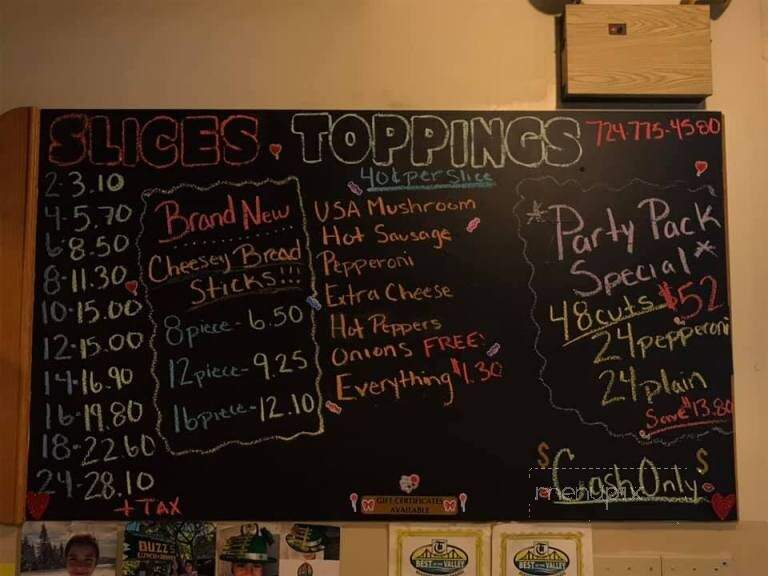 SLICES • TOPPINGS 724-775-4580
40¢ per slice
2-3.10
4-5.70
6-8.50
8-11.30
10-15.00
12-15.00
14-16.90
16-19.80
18-22.60
24-28.10
+ TAX
Brand New
Cheesey Bread
Sticks!!!
8 piece - 6.50
12 piece - 9.25
16 piece - 12.10
USA Mushroom
Hot Sausage
Pepperoni
Extra Cheese
Hot Peppers
Onions FREE!
Everything $1.30
*Party Pack
Special*
48 cuts $52
24 pepperoni
24 plain
Save $13.80
$ Cash Only $
menupix
GIFT CERTIFICATES
AVAILABLE
BUZZ
BEST OF THE VALLEY
BEST OF THE VALLEY